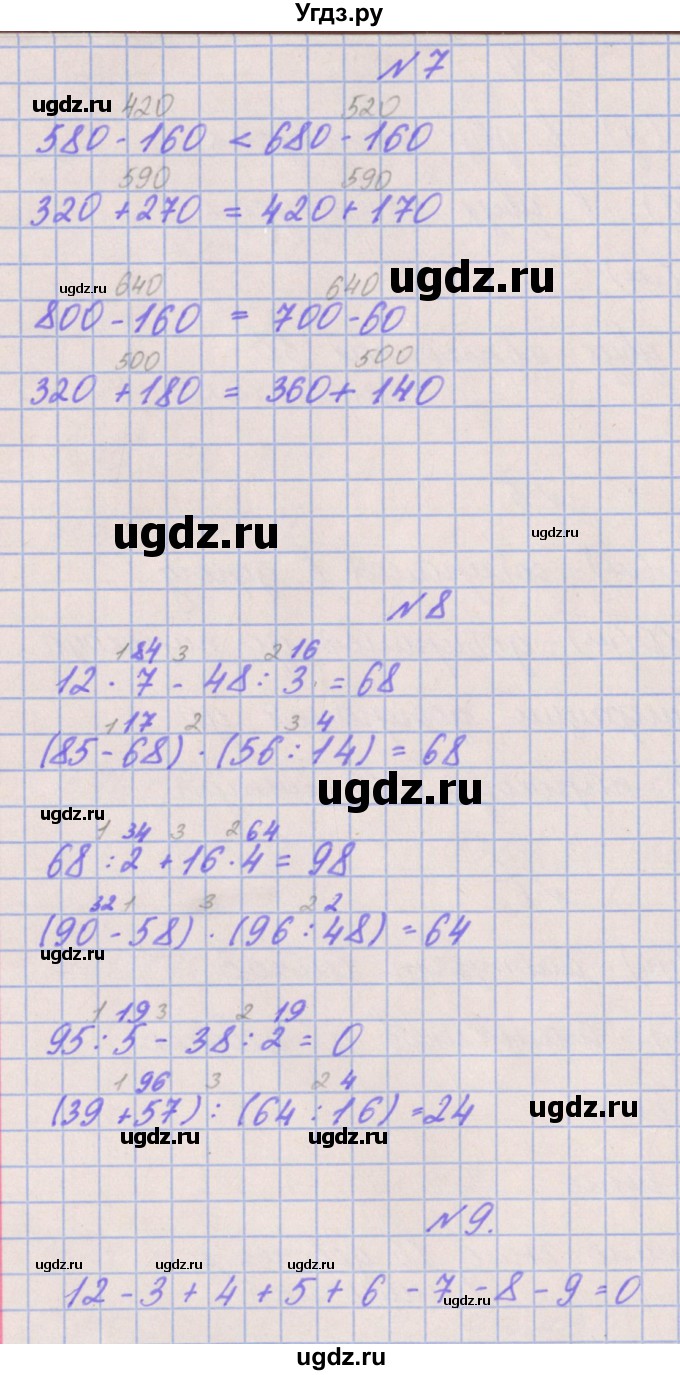 Угдз.ру
№7
ugdz.ru 420 520
580 - 160 < 680 - 160
590 590
320 + 270 = 420 + 170
ugdz.ru
ugdz.ru 640 640
800 - 160 = 700 - 60
500 500
320 + 180 = 360 + 140
ugdz.ru
ugdz.ru
№8
1 84 3 2 16
12 · 7 - 48 : 3 = 68
1 17 2 3 4
(85 - 68) · (56 : 14) = 68
ugdz.ru
ugdz.ru
1 34 3 2 64
68 : 2 + 16 · 4 = 98
32 1 3 2 2
(90 - 58) · (96 : 48) = 64
ugdz.ru
1 19 3 2 19
95 : 5 - 38 : 2 = 0
1 96 3 2 4
(39 + 57) : (64 : 16) = 24
ugdz.ru
ugdz.ru ugdz.ru
№9.
ugdz.ru ugdz.ru ugdz.ru
12 - 3 + 4 + 5 + 6 - 7 - 8 - 9 = 0
ugdz.ru
ugdz.ru